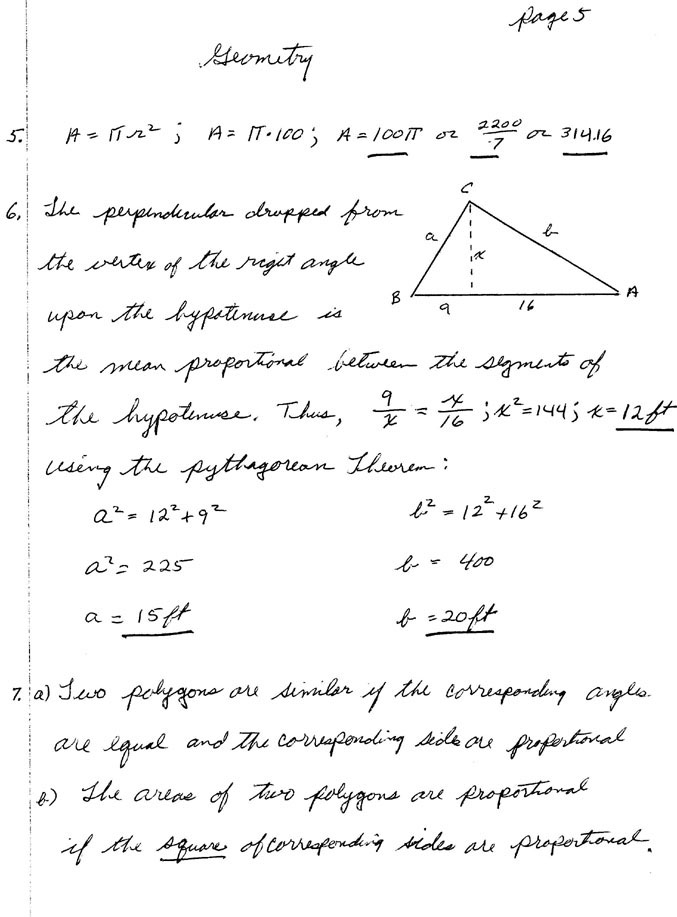 page 5
Geometry
5. A = πr² ; A = π·100 ; A = 100π or 2200/7 or 314.16
6. The perpendicular dropped from
the vertex of the right angle
upon the hypotenuse is
C
a
b
x
B
A
9
16
the mean proportional between the segments of
the hypotenuse. Thus, 9/x = x/16 ; x²=144 ; x = 12 ft
using the pythagorean Theorem :
a² = 12² + 9² b² = 12² + 16²
a² = 225 b = 400
a = 15 ft b = 20 ft
7. a) Two polygons are similar if the corresponding angles.
are equal and the corresponding sides are proportional
b.) The areas of two polygons are proportional
if the square of corresponding sides are proportional.